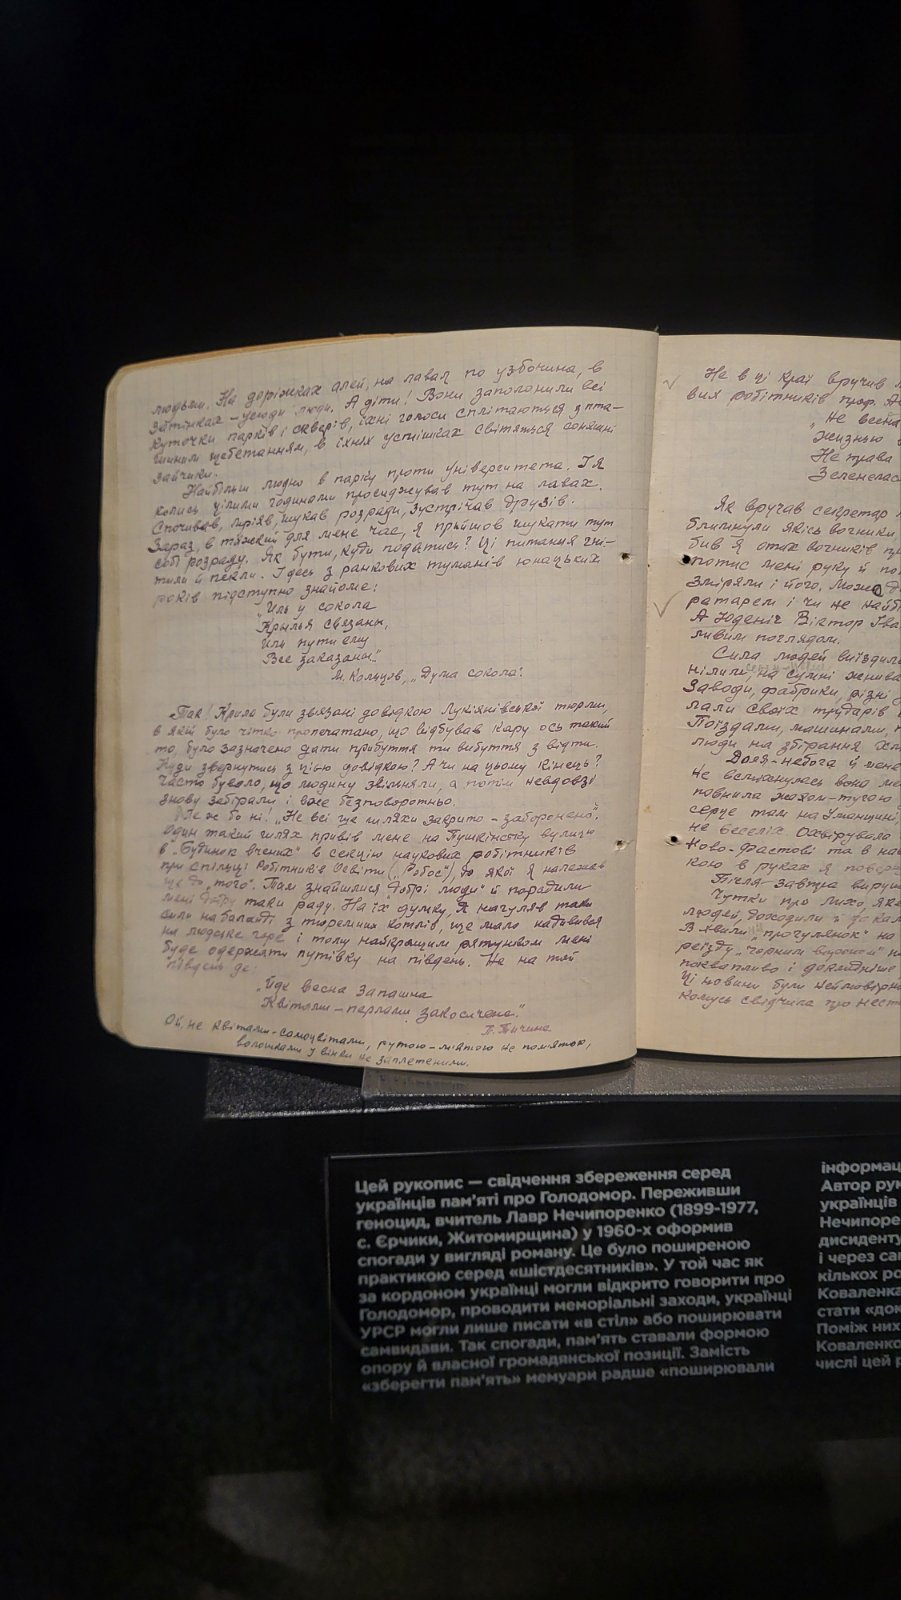 людьми. На доріжках алей, на лавах по узбочинах, в
затінках – усюди люди. А діти! Вони заполонили всі
куточки парків і скверів, їхні голоси сплітаються з пта-
шиним щебетанням, в їхніх усмішках світяться сонячні
зайчики.
Найбільш людно в парку проти університета. І я
колись цілими годинами просиджував тут на лавах.
Спочивав, мріяв, шукав розради, зустрічав друзів.
Зараз, в тяжкий для мене час, я прийшов шукати тут
собі розраду. Як бути, куди податись? Ці питання гні-
тили й пекли. І десь з ранкових туманів юнацьких
років підступно знайоме:
„Иль у сокола
Крылья связаны,
Иль пути ему
Все заказаны".
М. Кольцов, „Дума сокола".
Так! Крила були звязані довідкою Лукянівської тюрми,
в якій було чітко пропечатано, що відбував кару ось такий
то, було зазначено дати прибуття та вибуття з відти.
Куди звернутись з цією довідкою? А чи на цьому кінець?
Часто бувало, що людину звільняли, а потім невдовзі
знову забірали і вже безповоротньо.
Але ж бо ні. „Не всі ще шляхи закрито – заборонено".
Один такий шлях привів мене на Пушкінську вулицю
в „Будинок вчених" в секцію наукових робітників
при спілці Робітників Освіти („Робос"), до якої я належав
ще до „того". Там знайшлися „добрі люди" й порадили
мені добру таки раду. На їх думку, я нагуляв таки
сили на баланді з тюремних котлів, ще мало надивився
на людське горе і тому найкращим рятунком мені
буде одержати путівку на південь. Не на той
південь де:
„Йде весна запашна
Квітами – перлами закосичена."
П. Тичина
Ой, не квітами-самоцвітами, рутою-мятою не помятою,
волошками у вінки не заплетеними.
Не в ці краї вручив
вих робітників проф.
„Не весна
Жизнью
Не трава
Зеленелась
Як вручав секретар
блимнули якісь вогники
бив я отих вогників
потис мені руку й
зміряли і його. Може
ратарем і чи не
А Юденіч Віктор
ливим поглядом.
Сила людей виїздила
на сумні жнива
Заводи, фабрики, різні
лали своїх трударів
Поїздами, машинами,
люди на збірання
Доля-небога й мене
Не всміхнулась вона
повнила жахом-тугою
серце там на Уманщині,
не веселих
Ново-Фастові та в
кою в руках я
Після-завтра
Чутки про лихо, яке
людей, доходили й до
В хвили „прогулянок" на
реїзду „чорним вороном"
поквапливо і докладніше
Ці новини були неймовірно
комусь свідчила про
Цей рукопис — свідчення збереження серед
українців пам'яті про Голодомор. Переживши
геноцид, вчитель Лавр Нечипоренко (1899-1977,
с. Єрчики, Житомирщина) у 1960-х оформив
спогади у вигляді роману. Це було поширеною
практикою серед «шістдесятників». У той час як
за кордоном українці могли відкрито говорити про
Голодомор, проводити меморіальні заходи, українці
УРСР могли лише писати «в стіл» або поширювати
самвидави. Так спогади, пам'ять ставали формою
опору й власної громадянської позиції. Замість
«зберегти пам'ять» мемуари радше «поширювали
інформац
Автор рук
українців
Нечипоре
дисиденту
і через са
кількох ро
Коваленка
стати «док
Поміж них
Коваленко
числі цей р